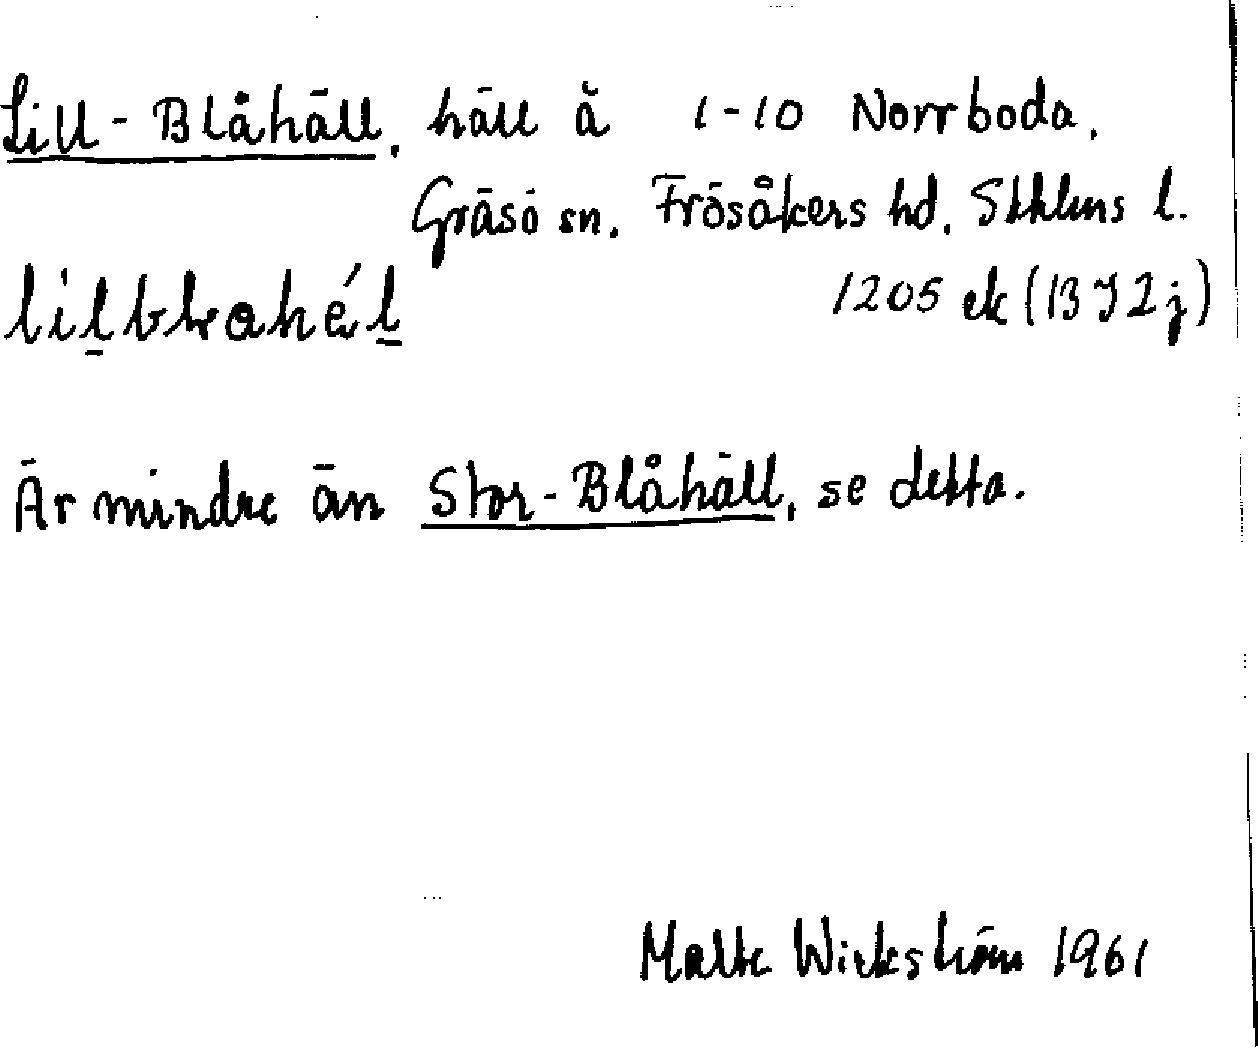 Lill-Blåhäll, häll å 1-10 Norrboda,
Gräsö sn. Frösåkers hd. Sthlms l.
1205 ek (13 I 2 j)
Är mindre än Stor-Blåhäll, se detta.
Malte Wickström 1961